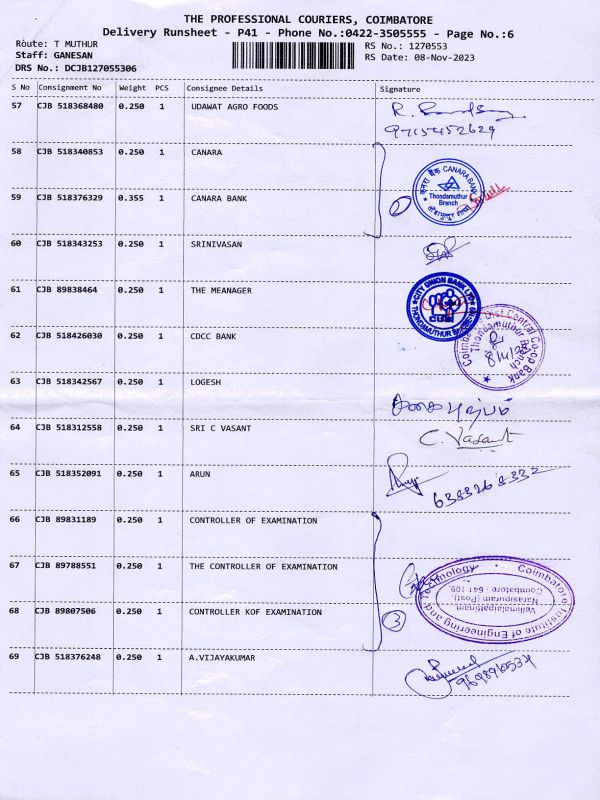 THE PROFESSIONAL COURIERS, COIMBATORE
Delivery Runsheet - P41 - Phone No.:0422-3505555 - Page No.:6
Route: T MUTHUR
RS No.: 1270553
Staff: GANESAN
RS Date: 08-Nov-2023
DRS No.: DCJB127055306
S No Consignment No Weight PCS Consignee Details Signature
57 CJB 518368480 0.250 1 UDAWAT AGRO FOODS
9715452629
58 CJB 518340853 0.250 1 CANARA
59 CJB 518376329 0.355 1 CANARA BANK
2
केनरा बैंक CANARA BANK
Thondamuthur
Branch
60 CJB 518343253 0.250 1 SRINIVASAN
61 CJB 89838464 0.250 1 THE MEANAGER
CITY UNION BANK LTD
THONDAMUTHUR
CUB
62 CJB 518426030 0.250 1 CDCC BANK
Coimbatore Dist Central Co-op Bank
Thondamuthur
Branch
63 CJB 518342567 1 LOGESH
64 CJB 518312558 0.250 1 SRI C VASANT
C. Vasant
65 CJB 518352091 0.250 1 ARUN
66 CJB 89831189 0.250 1 CONTROLLER OF EXAMINATION
67 CJB 89788551 0.250 1 THE CONTROLLER OF EXAMINATION
68 CJB 89807506 0.250 1 CONTROLLER KOF EXAMINATION
3
Coimbatore Institute of Engineering and Technology
Vellimalaipattinam
Narasipuram (Post),
Coimbatore - 641 109.
69 CJB 518376248 0.250 1 A.VIJAYAKUMAR